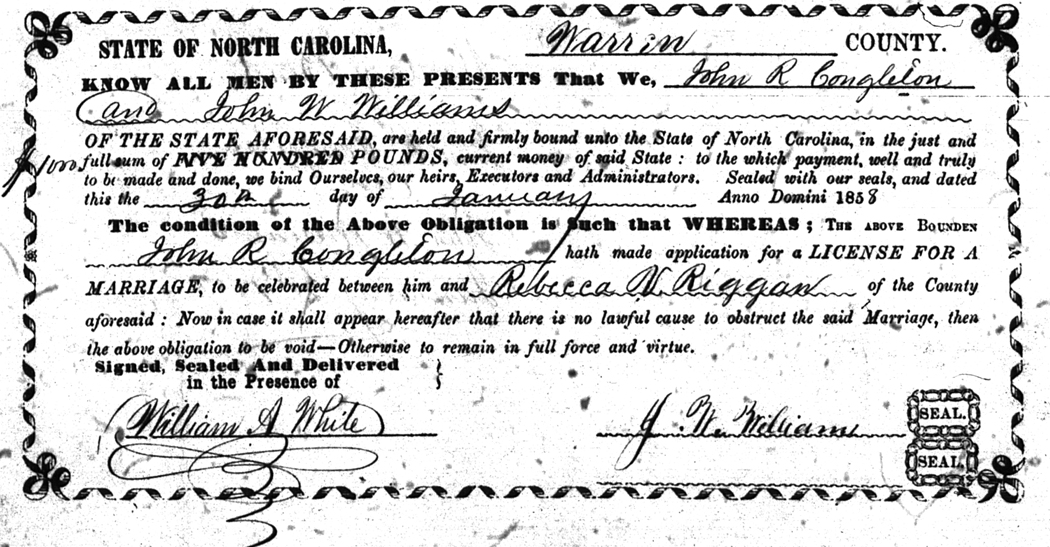 STATE OF NORTH CAROLINA, Warren COUNTY.
KNOW ALL MEN BY THESE PRESENTS That We, John R Congleton
and John W Williams
OF THE STATE AFORESAID, are held and firmly bound unto the State of North Carolina, in the just and
$1000 full sum of FIVE HUNDRED POUNDS, current money of said State : to the which payment, well and truly
to be made and done, we bind Ourselves, our heirs, Executors and Administrators. Sealed with our seals, and dated
this the 30th day of January Anno Domini 1858
The condition of the Above Obligation is Such that WHEREAS ; THE ABOVE BOUNDEN
John R Congleton hath made application for a LICENSE FOR A
MARRIAGE, to be celebrated between him and Rebecca N Riggan of the County
aforesaid : Now in case it shall appear hereafter that there is no lawful cause to obstruct the said Marriage, then
the above obligation to be void—Otherwise to remain in full force and virtue.
Signed, Sealed And Delivered
in the Presence of }
William A White J. W. Williams SEAL.
SEAL.